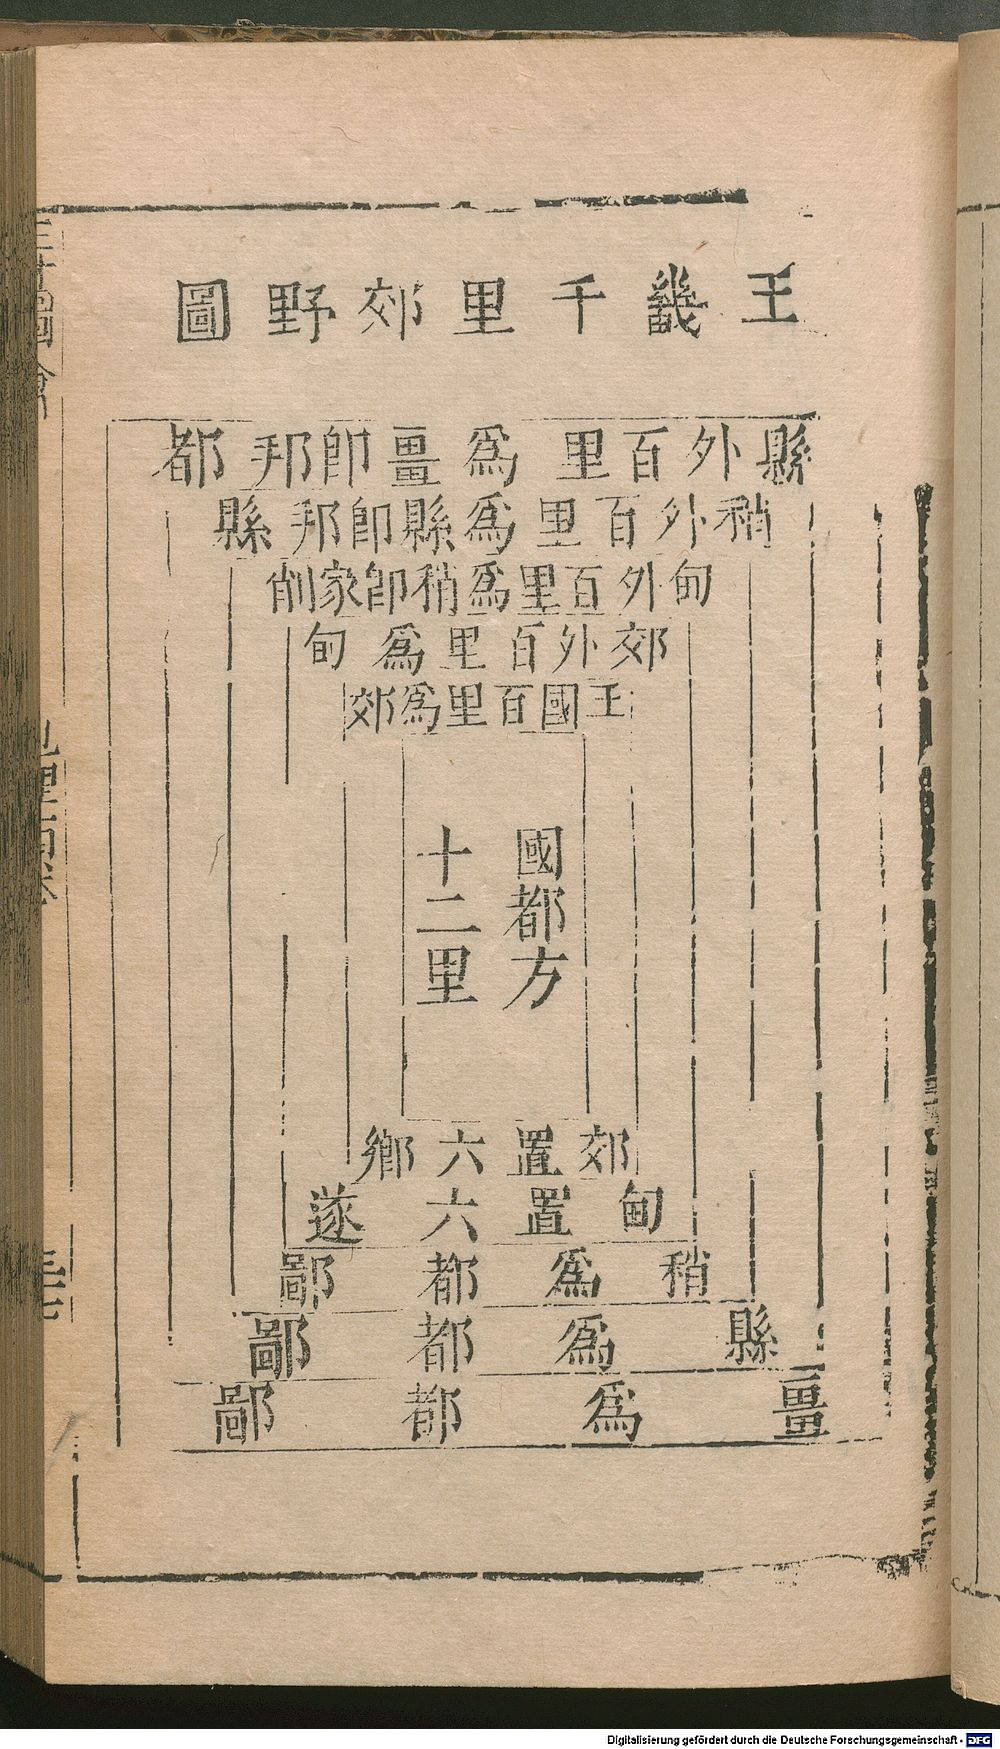 王畿千里郊野圖
縣外百里為畺卽邦都
稍外百里為縣卽邦縣
甸外百里為稍卽家削
郊外百里為甸
王國百里為郊
國都方
十二里
郊置六鄉
甸置六遂
稍為都鄙
縣為都鄙
畺為都鄙
Digitalisierung gefördert durch die Deutsche Forschungsgemeinschaft - DFG